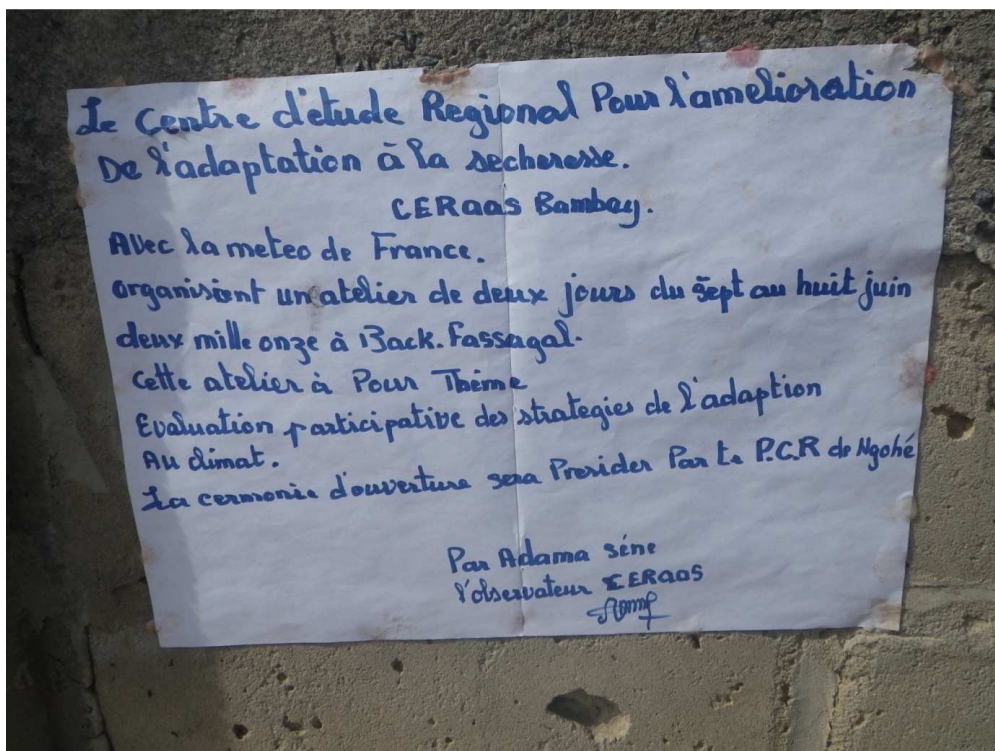 Le Centre d'étude Regional Pour l'amelioration
De l'adaptation à la secheresse.
CERaas Bambey.
Avec la meteo de France.
organisient un atelier de deux jours du sept au huit juin
deux mille onze à Back. Fassagal.
Cette atelier à Pour Thème
Evaluation participative des strategies de l'adaption
Au climat.
La cermonie d'ouverture sera Presider Par Le P.C.R de Ngohé
Par Adama séne
l'observateur CERaas